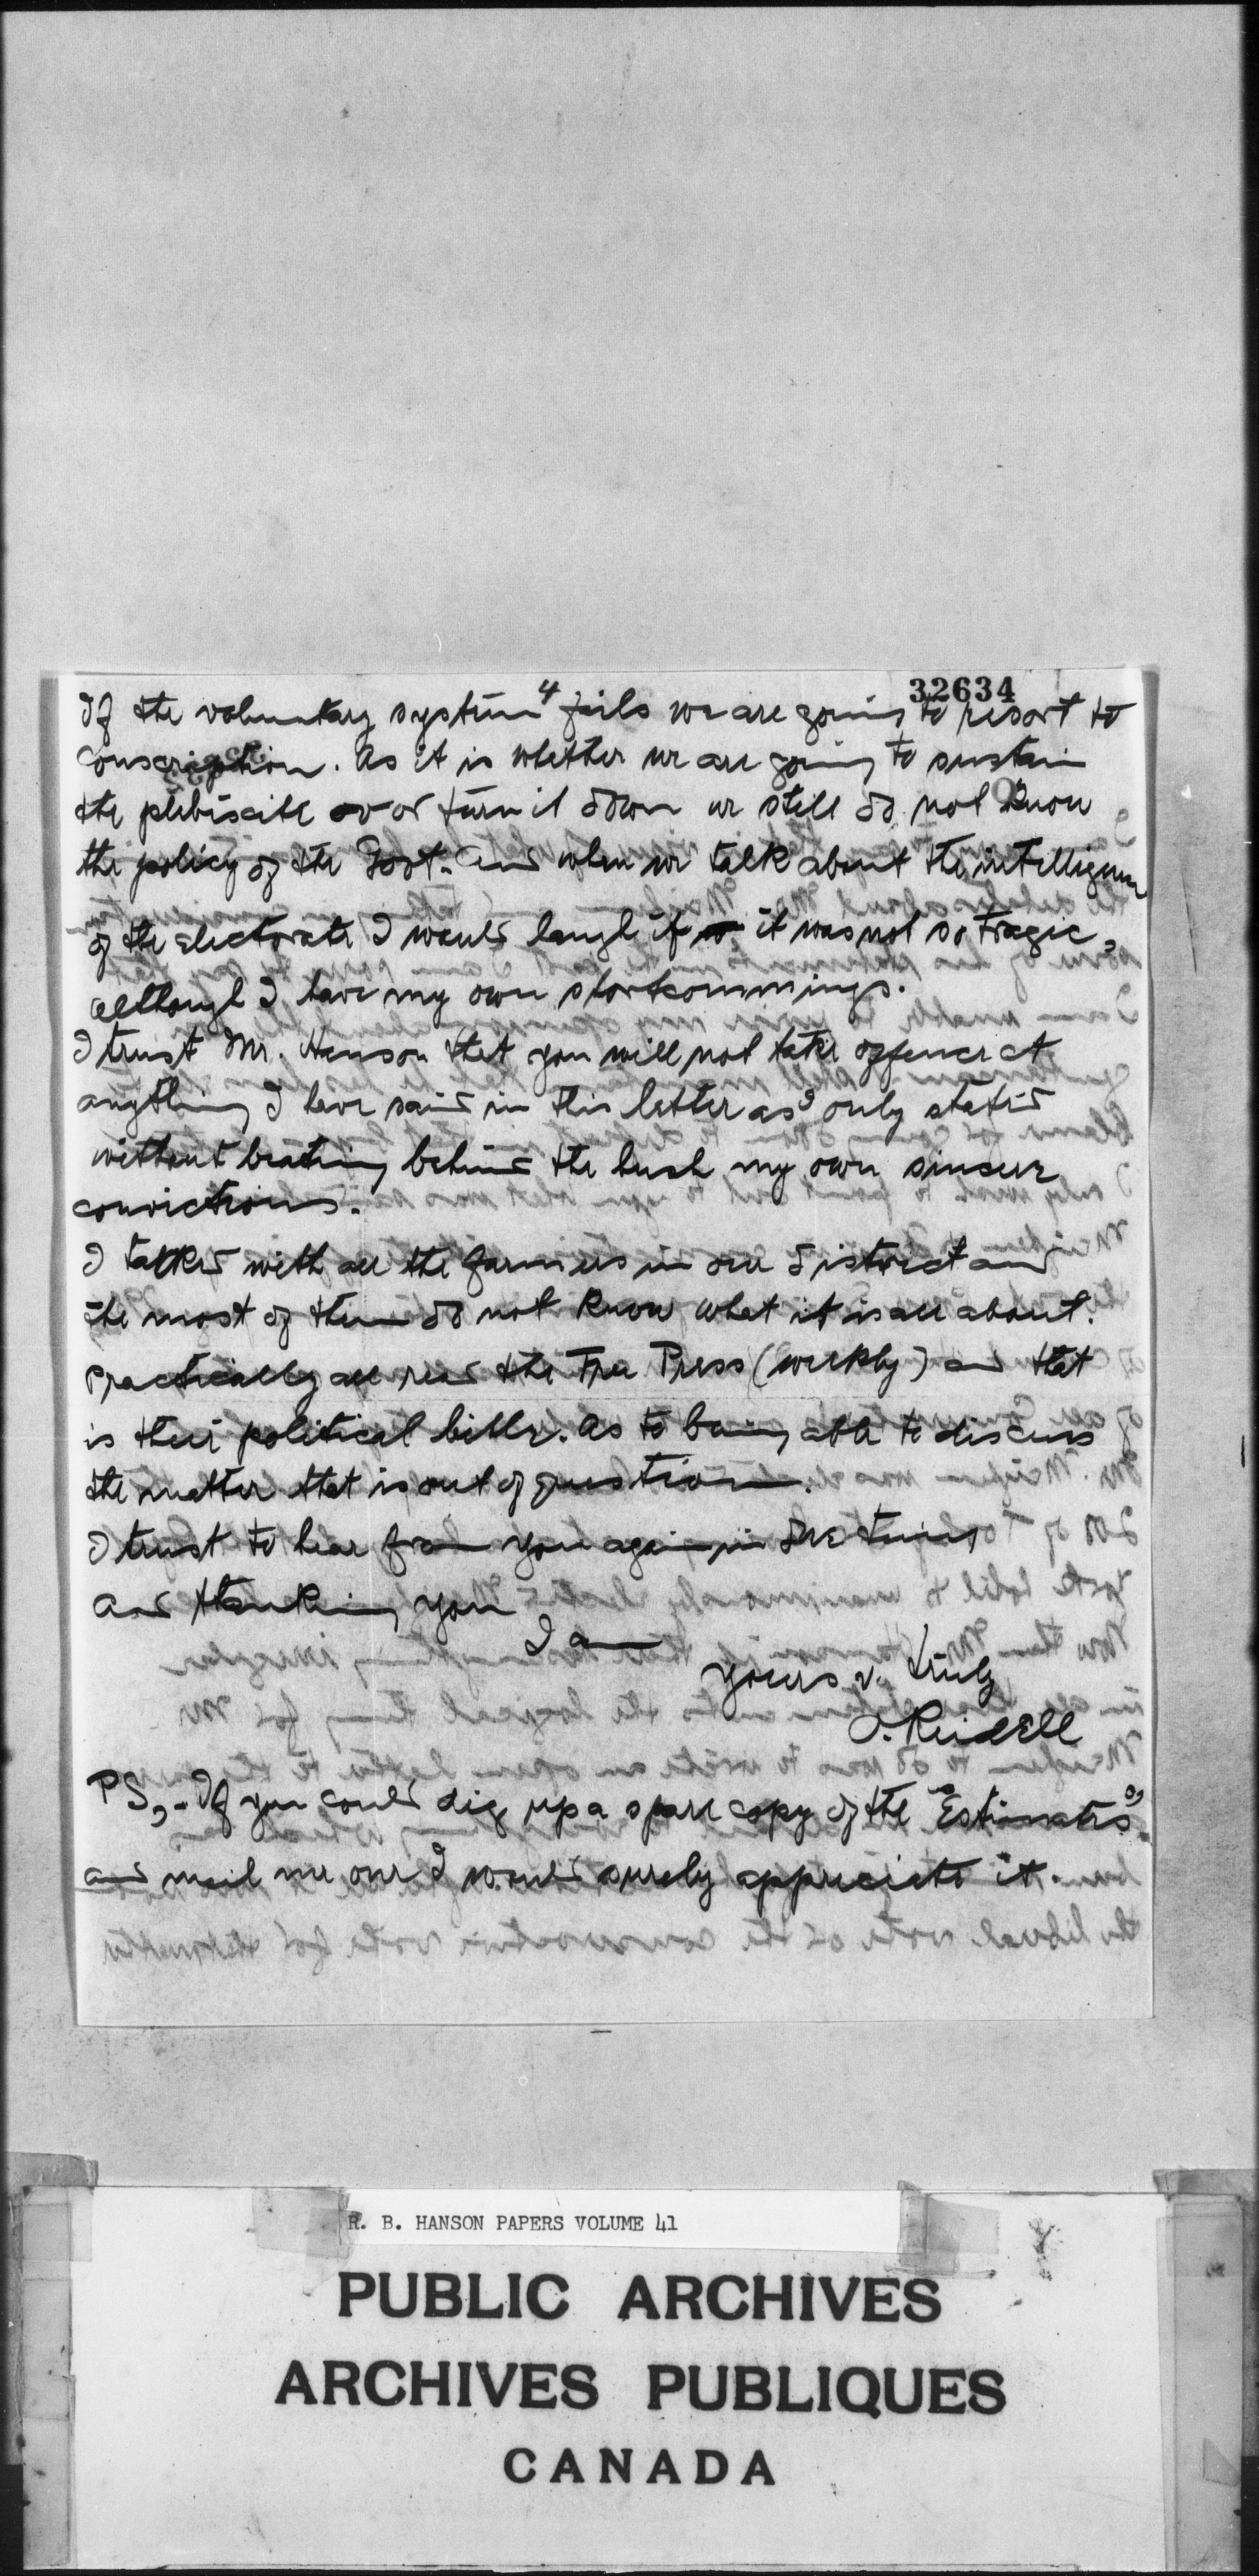 4
32634
If the voluntary system fails we are going to resort to
conscription. As it is whether we are going to sustain
the plebiscite or turn it down we still do not know
the policy of the Govt. And when we talk about the intelligence
of the electorate I would laugh if it was not so tragic,
although I have my own shortcommings.
I trust Mr. Hanson that you will not take offence at
anything I have said in this letter as I only stated
without beating behind the bush my own sincere
convictions.
I talked with all the farmers in our district and
the most of them do not know what it is all about.
Practically all read the Free Press (weekly) and that
is their political bible. As to being able to discuss
the matter that is out of question.
I trust to hear from you again in due time,
and thanking you
I am
yours v. truly
O. Reidell
PS,- If you could dig up a spare copy of the "Estimates"
and mail me one I would surely appreciate it.
R. B. HANSON PAPERS VOLUME 41
PUBLIC ARCHIVES
ARCHIVES PUBLIQUES
CANADA